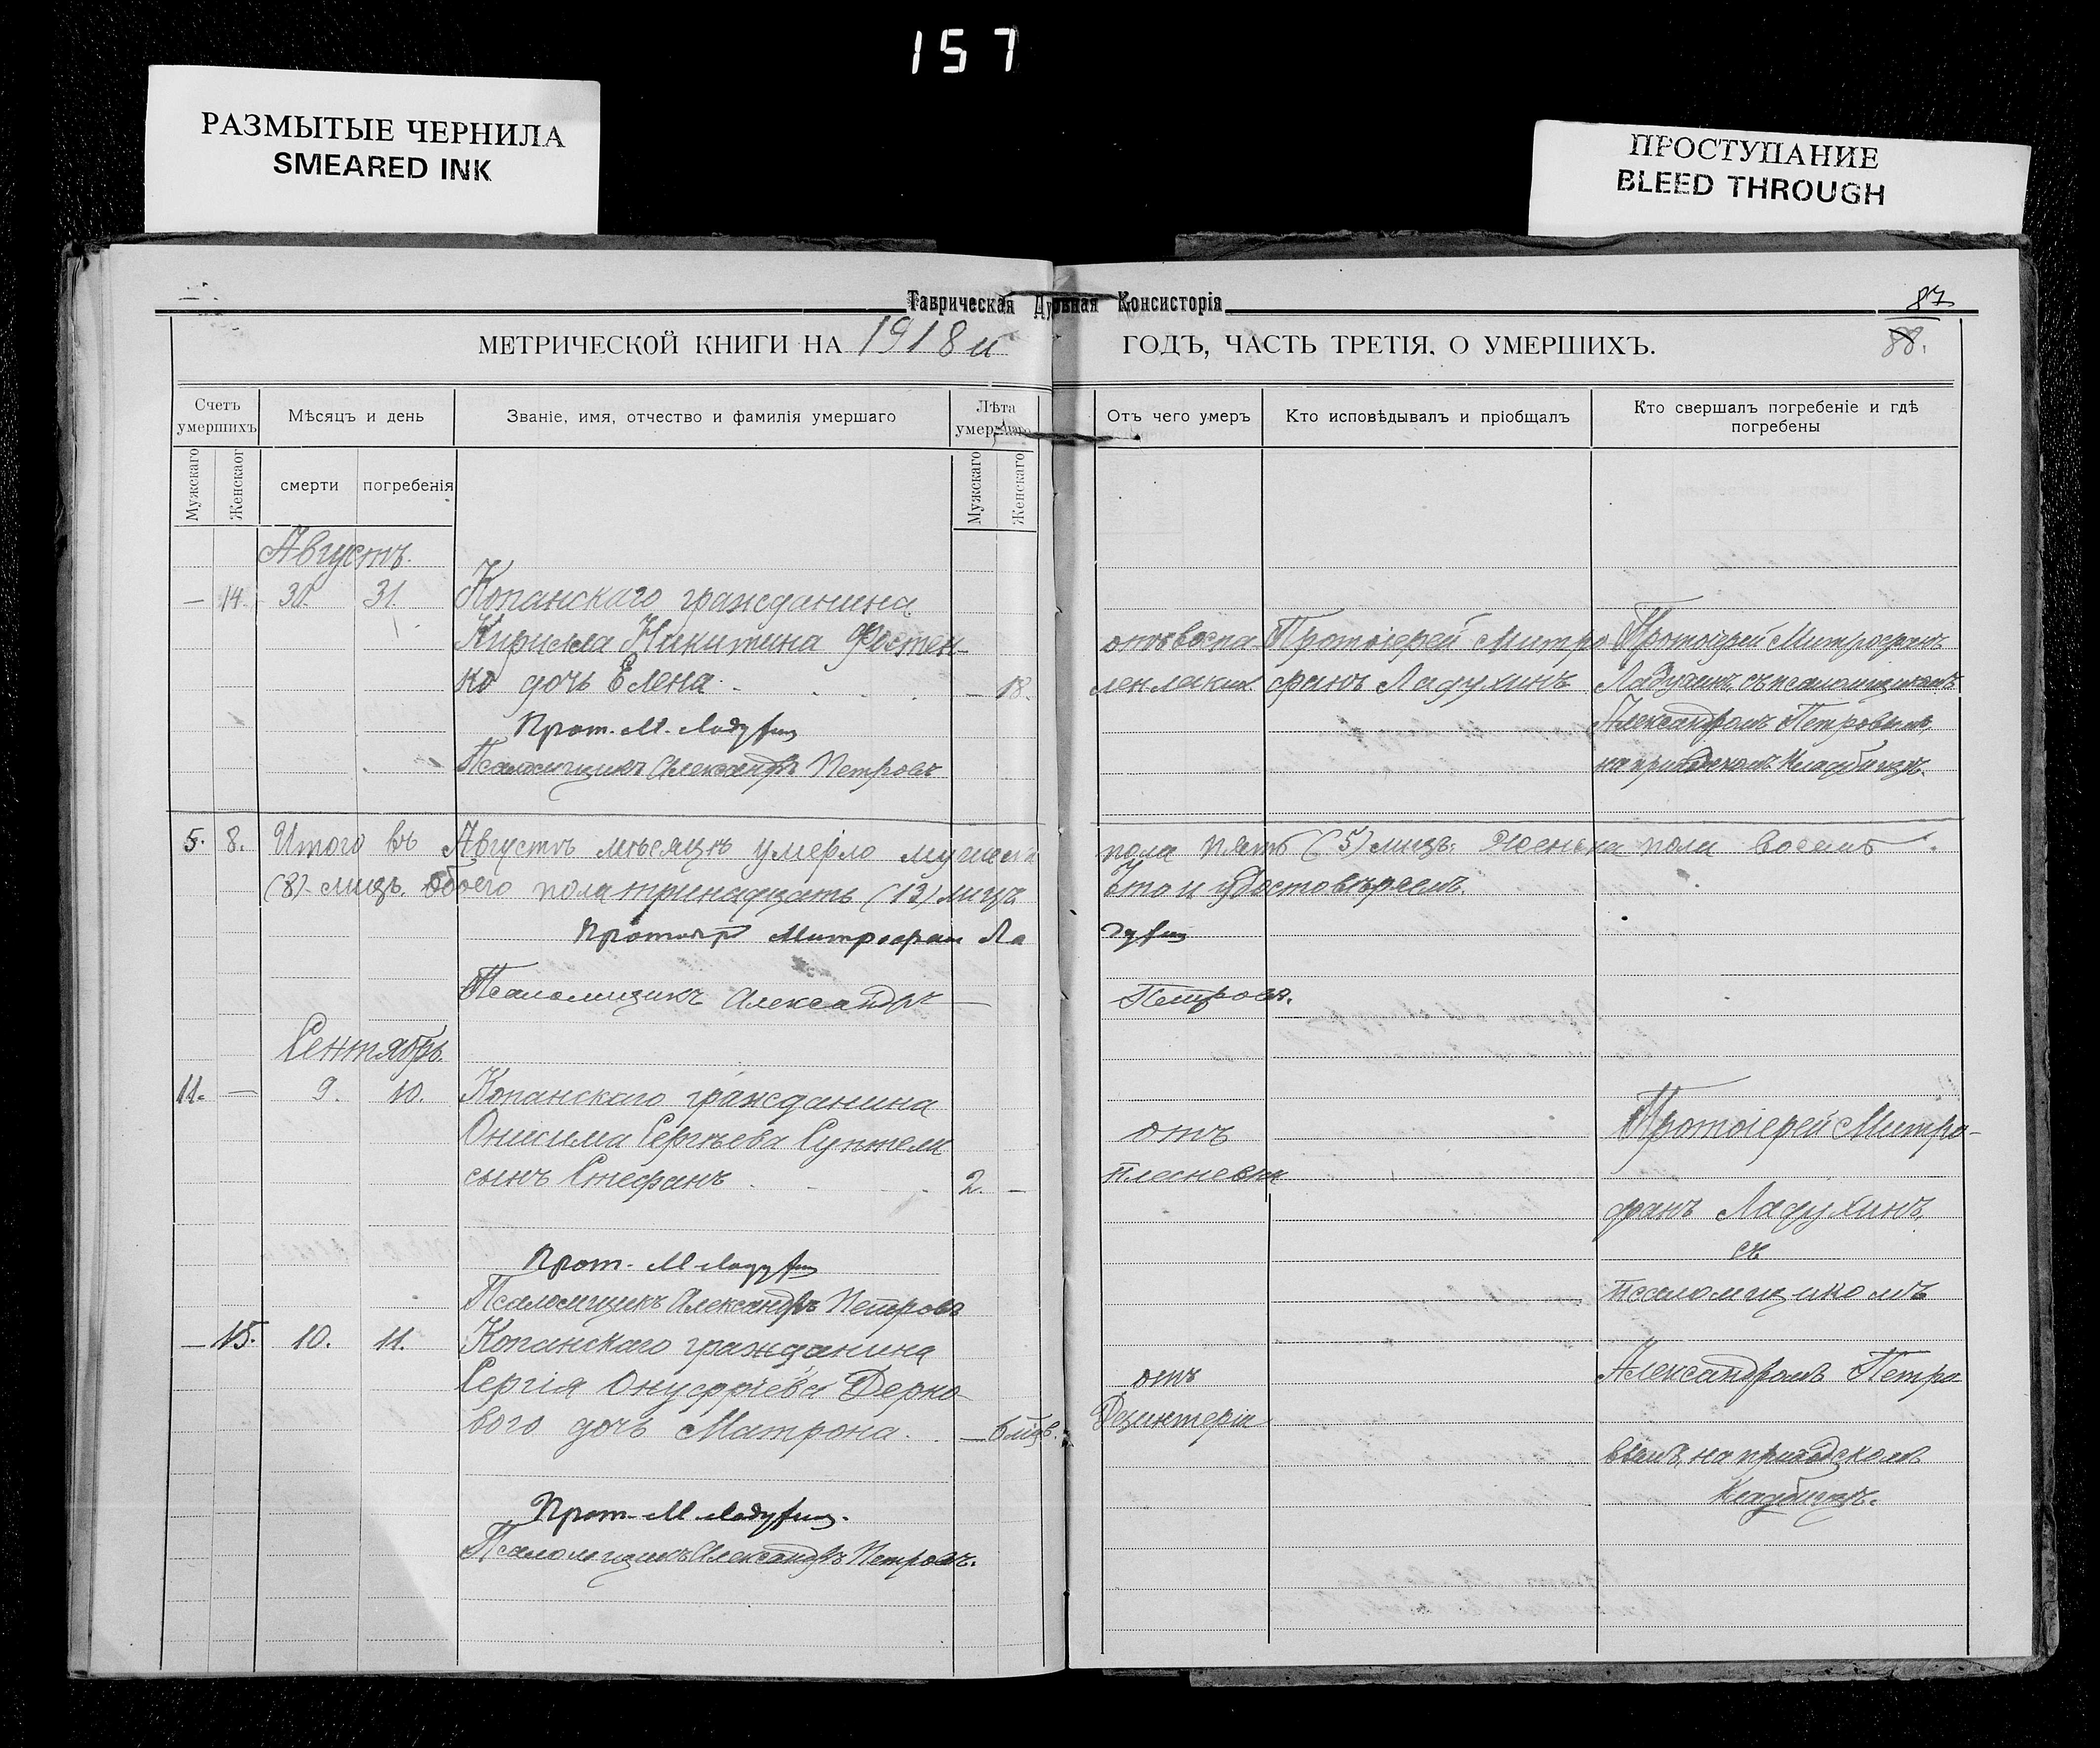 157
РАЗМЫТЫЕ ЧЕРНИЛА
SMEARED INK
ПРОСТУПАНИЕ
BLEED THROUGH
Таврическая Духовная Консисторія
87
88.
МЕТРИЧЕСКОЙ КНИГИ НА 1918 й ГОДЪ, ЧАСТЬ ТРЕТІЯ, О УМЕРШИХЪ.
Счетъ умершихъ
Мѣсяцъ и день
Званіе, имя, отчество и фамилія умершаго
Лѣта умершаго
Отъ чего умеръ
Кто исповѣдывалъ и пріобщалъ
Кто свершалъ погребеніе и гдѣ погребены
Мужскаго
Женскаог
смерти
погребенія
Мужскаго
Женскаго
Августъ.
— 14. 30. 31. Копанскаго гражданина
Кирилла Никитина Фостен-
ко дочь Елена. — 18.
отъ воспа-
лен легких
Протоіерей Митро
фанъ Ладухинъ
Протоіерей Митрофанъ
Ладухинъ, съ псаломщикомъ
Александромъ Петровымъ,
на приходскомъ кладбищѣ.
Прот. М. Ладухин
Псаломщикъ Александръ Петровъ
5. 8. Итого въ Августѣ мѣсяцѣ умерло мужеска пола пять (5) лицъ. Женска пола восемь
(8) лицъ. Обоего пола тринадцать (13) лицъ Что и удостовѣряемъ.
Протоіер Митрофан Ла духин
Псаломщикъ Александръ — Петровъ.
Сентябрь.
11. — 9. 10. Копанскаго гражданина
Онисима Сергѣева
сынъ Стефанъ 2. —
отъ
Протоіерей Митро-
фанъ Ладухинъ,
съ
псаломщикомъ
Прот. М Ладухин
Псаломщикъ Александръ Петровъ
— 15. 10. 11. Копанскаго гражданина
Сергія Онуфріева Дерко-
вого дочь Матрона. —
отъ
Дезинтеріи
Александромъ Петро
вымъ, на приходскомъ
кладбищѣ.
Прот. М Ладухин.
Псаломщикъ Александръ Петровъ.